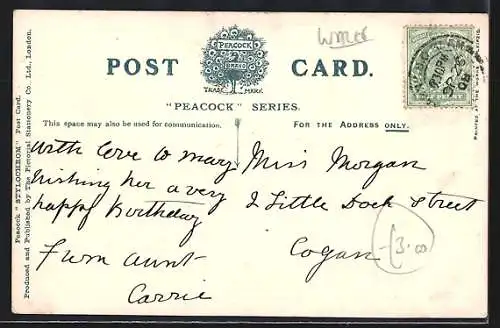 PEACOCK
BRAND
TRADE MARK
POST CARD.
"PEACOCK" SERIES.
This space may also be used for communication.
FOR THE ADDRESS ONLY.
Peacock "STYLOCHROM" Post Card.
Produced and Published by The Pictorial Stationery Co., Ltd., London.
with love to mary
Wishing her a very
happy Birthday
From Aunt
Carrie
Miss Morgan
2 Little Dock Street
Cogan
3.00